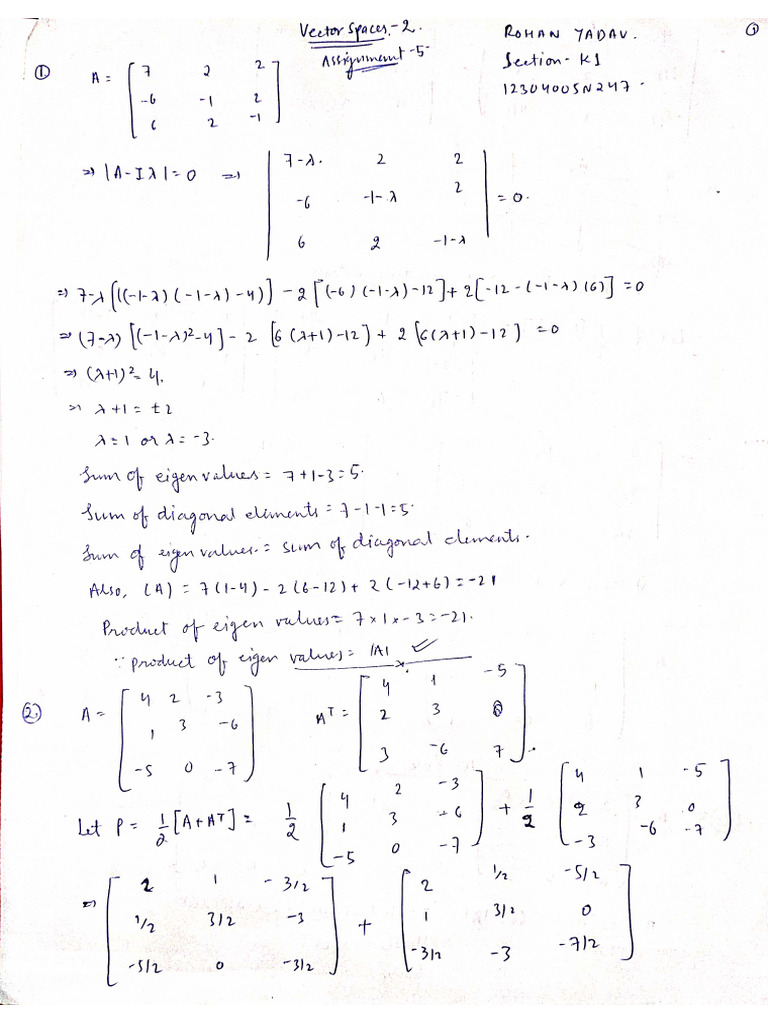 Vector Spaces - 2.
Assignment - 5
ROHAN YADAV.
Section - K1
12304005N247.
①
① A = [ 7 2 2
-6 -1 2
6 2 -1 ]
⇒ |A-Iλ| = 0 ⇒ | 7-λ. 2 2
-6 -1-λ 2
6 2 -1-λ | = 0.
⇒ 7-λ [((-1-λ)(-1-λ)-4)] - 2 [(-6)(-1-λ)-12] + 2 [-12-(-1-λ)(6)] = 0
⇒ (7-λ) [(-1-λ)²-4] - 2 [6(λ+1)-12] + 2 [6(λ+1)-12] = 0
⇒ (λ+1)² = 4.
⇒ λ+1 = ±2
λ=1 or λ= -3.
Sum of eigen values = 7+1-3 = 5.
Sum of diagonal elements = 7-1-1 = 5.
Sum of eigen values. = sum of diagonal elements.
Also, (A) = 7(1-4) - 2(6-12) + 2(-12+6) = -21
Product of eigen values = 7×1×-3 = -21.
∵ product of eigen values = |A| ✓
② A = [ 4 2 -3
1 3 -6
-5 0 -7 ]
Aᵀ = [ 4 1 -5
2 3 0
3 -6 7 ].
Let P = 1/2 [A+Aᵀ] = 1/2 [ 4 2 -3
1 3 -6
-5 0 -7 ] + 1/2 [ 4 1 -5
2 3 0
-3 -6 -7 ]
⇒ [ 2 1 -3/2
1/2 3/2 -3
-5/2 0 -3/2 ] + [ 2 1/2 -5/2
1 3/2 0
-3/2 -3 -7/2 ]